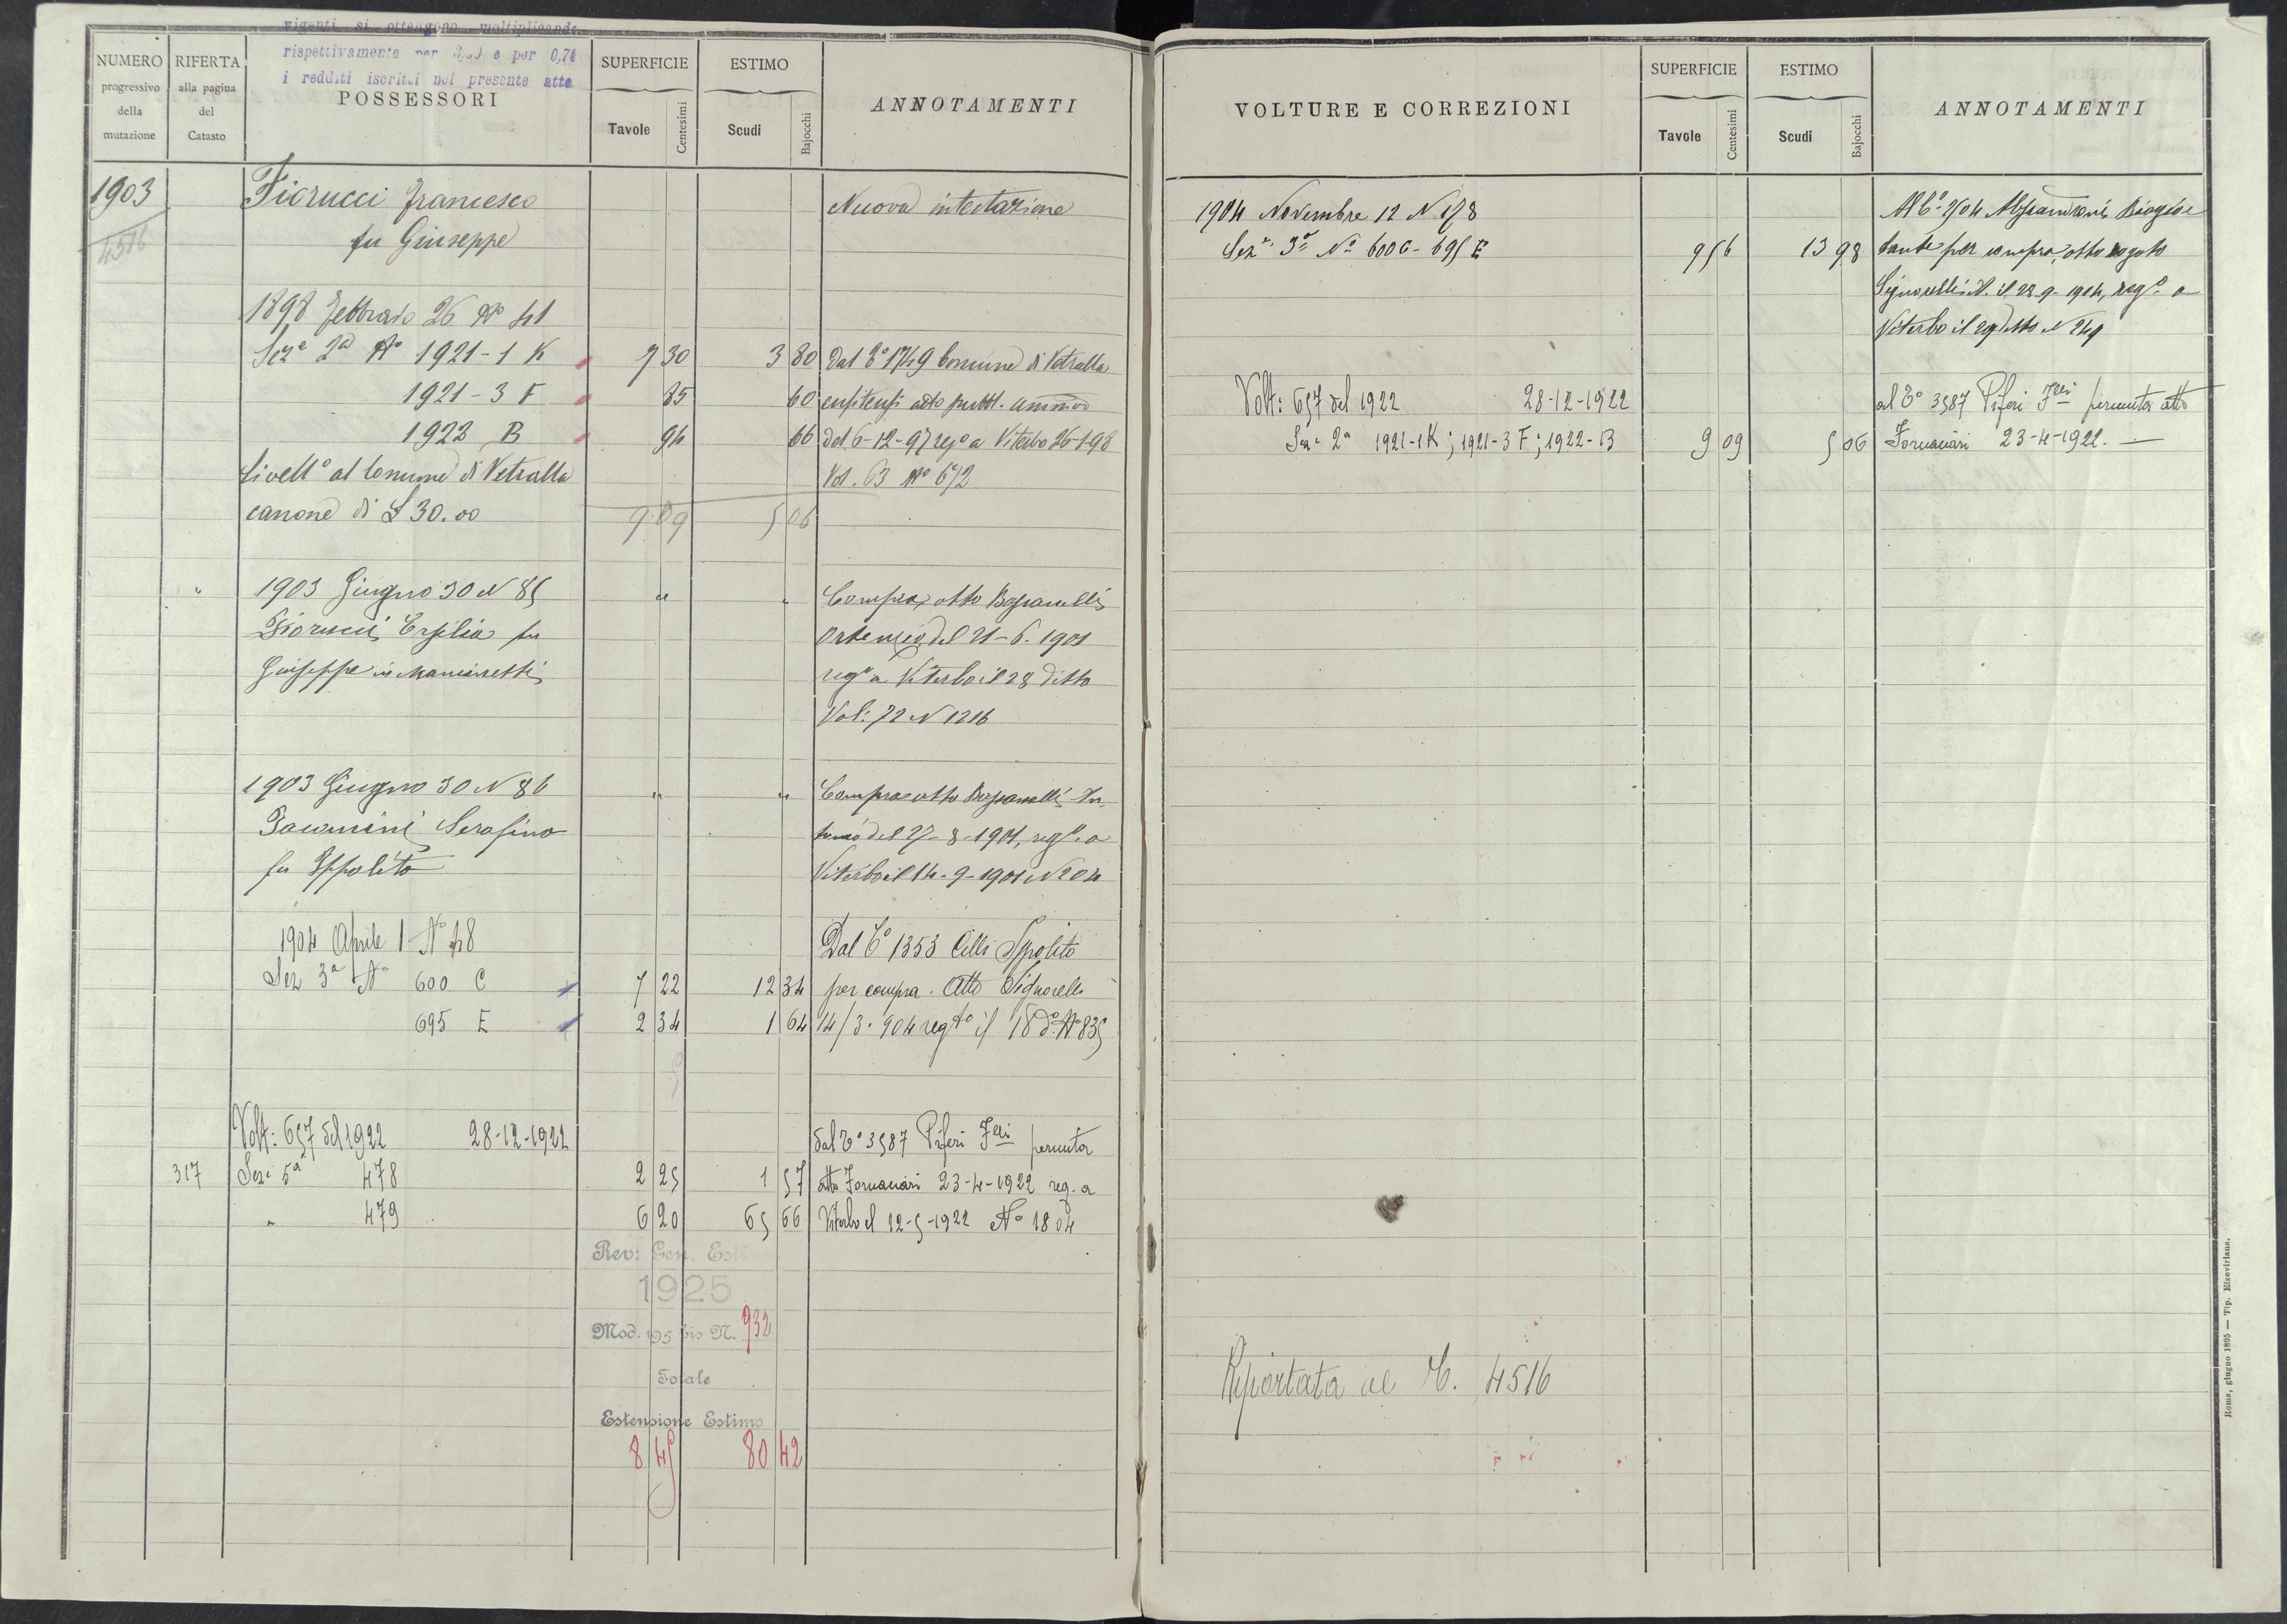 vigenti si ottengono moltiplicando
rispettivamente per e per 0,74
i redditi iscritti nel presente atto
NUMERO progressivo della mutazione
RIFERTA alla pagina del Catasto
POSSESSORI
SUPERFICIE
Tavole Centesimi
ESTIMO
Scudi Bajocchi
ANNOTAMENTI
1903
4516
Fiorucci Francesco
fu Giuseppe
Nuova intestazione
1898 Febbraio 26 No 41
Seze 2a No 1921-1 K 7 30 3 80 Dal Co 1749 Comune di Vetralla
1921-3 F 85 60 enfiteusi atto pubbl. ammvo
1922 B 94 66 del 6-12-97 rego a Viterbo 26-1-98
Livello al Comune di Vetralla Vol. 63 No 672
canone di £ 30.00 9 09 5 06
" 1903 Giugno 30 N 85 " " Compra, atto Bassanelli
Fiorucci Ersilia fu Ortensio, del 21-6-1901
Giuseppe in rego a Viterbo il 28 ditto
Vol: 72 N 1216
1903 Giugno 30 N 86 " " Compra atto Bassanelli
Serafino del 27-8-1901, rego a
fu Ippolito Viterbo il 14-9-1901 N 204
1904 Aprile 1 No 48 Dal Co 1353 Cilli Ippolito
Sez 3a No 600 C 7 22 12 34 per compra. Atto Signorelli
695 E 2 34 1 64 14/3.904 regto il 18 do No 835
Volt: 657 del 1922 28-12-1922 dal Co 3587 Piferi Flli permuta
317 Sez: 5a 478 2 25 1 57 atto Fornaciari 23-4-1922 reg. a
" 479 6 20 65 66 Viterbo il 12-5-1922 No 1804
Rev: Gen. Esti
1925
Mod. 195 bis N. 932
Totale
Estensione Estimo
8 45 80 42
VOLTURE E CORREZIONI
SUPERFICIE
Tavole Centesimi
ESTIMO
Scudi Bajocchi
ANNOTAMENTI
1904 Novembre 12 N 178 Al Co 2704 Biagio e
Seze 3a No 600 C - 695 E 9 56 13 98 per compra, atto rogato
Signorelli il 28-9-1904, rego a
Viterbo il N 249
Volt: 657 del 1922 28-12-1922 al Co 3587 Piferi Flli permuta atto
Sez: 2a 1921-1K; 1921-3 F; 1922-B 9 09 5 06 Fornaciari 23-4-1922. —
Riportata al C. 4516
Roma, giugno 1895 — Tip. Elzeviriana.